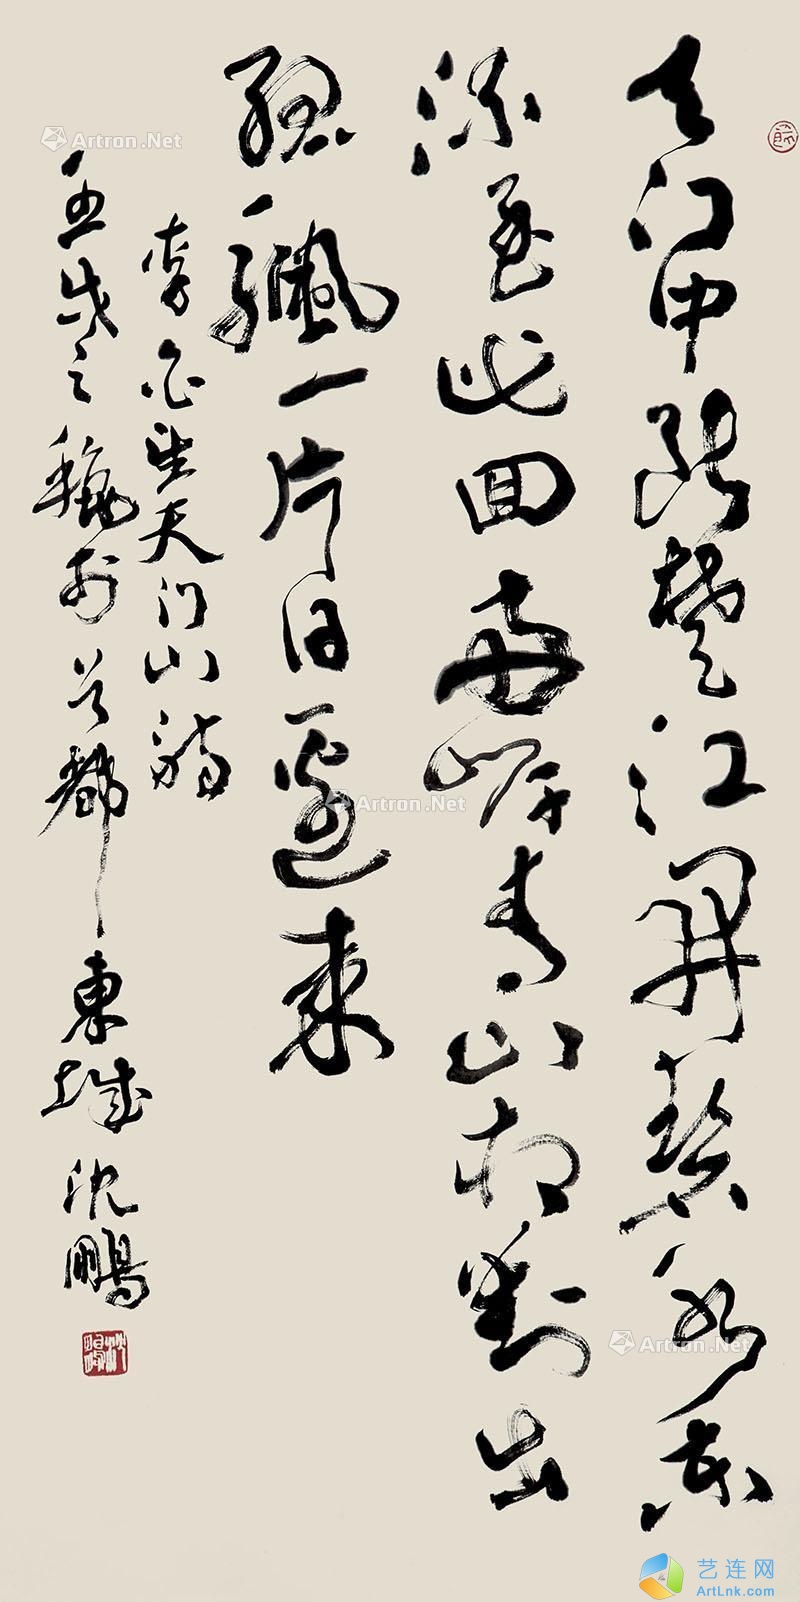 天門中斷楚江開碧水東
流至此回兩岸青山相對出
孤颿一片日邊來
李白望天門山詩
壬戌之秋於首都東城 沈鵬
沈鵬
Artron.Net
Artron.Net
Artron.Net
Artron.Net
艺连网
ArtLnk.com